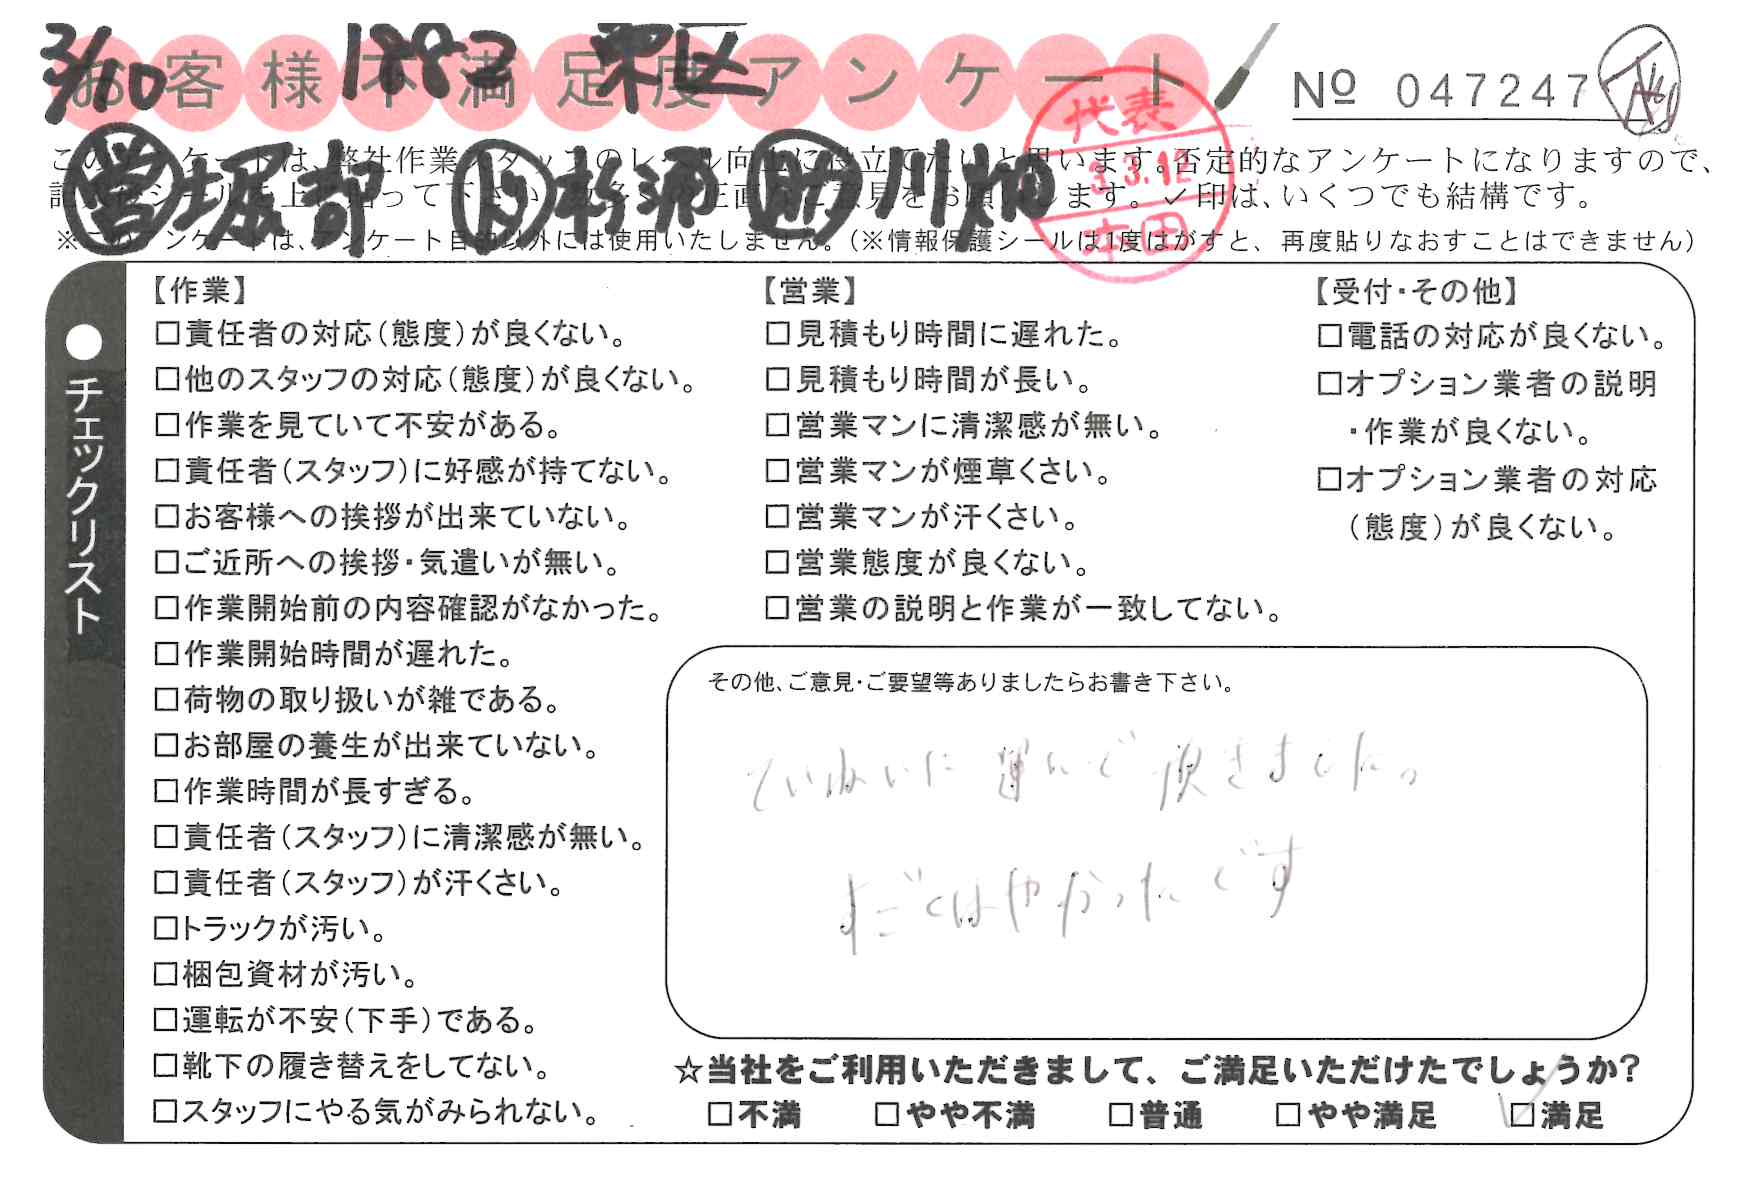 3/10 1882 東区
お客様不満足度アンケート
№ 047247
㊞営 堀奇 杉浦 助 川畑
代表
3.3.12
本田
このアンケートは、弊社作業スタッフのレベル向上に役立てたいと思います。否定的なアンケートになりますので、
記入後シールを上に貼って下さい。数多くの正直なご意見をお願いします。✓印は、いくつでも結構です。
※このアンケートは、アンケート目的以外には使用いたしません。(※情報保護シールは1度はがすと、再度貼りなおすことはできません)
●チェックリスト
【作業】
□責任者の対応(態度)が良くない。
□他のスタッフの対応(態度)が良くない。
□作業を見ていて不安がある。
□責任者(スタッフ)に好感が持てない。
□お客様への挨拶が出来ていない。
□ご近所への挨拶・気遣いが無い。
□作業開始前の内容確認がなかった。
□作業開始時間が遅れた。
□荷物の取り扱いが雑である。
□お部屋の養生が出来ていない。
□作業時間が長すぎる。
□責任者(スタッフ)に清潔感が無い。
□責任者(スタッフ)が汗くさい。
□トラックが汚い。
□梱包資材が汚い。
□運転が不安(下手)である。
□靴下の履き替えをしてない。
□スタッフにやる気がみられない。
【営業】
□見積もり時間に遅れた。
□見積もり時間が長い。
□営業マンに清潔感が無い。
□営業マンが煙草くさい。
□営業マンが汗くさい。
□営業態度が良くない。
□営業の説明と作業が一致してない。
【受付・その他】
□電話の対応が良くない。
□オプション業者の説明
・作業が良くない。
□オプション業者の対応
(態度)が良くない。
その他、ご意見・ご要望等ありましたらお書き下さい。
ていねいに運んで頂きました。
すごくはやかったです
☆当社をご利用いただきまして、ご満足いただけたでしょうか?
□不満 □やや不満 □普通 □やや満足 ☑満足